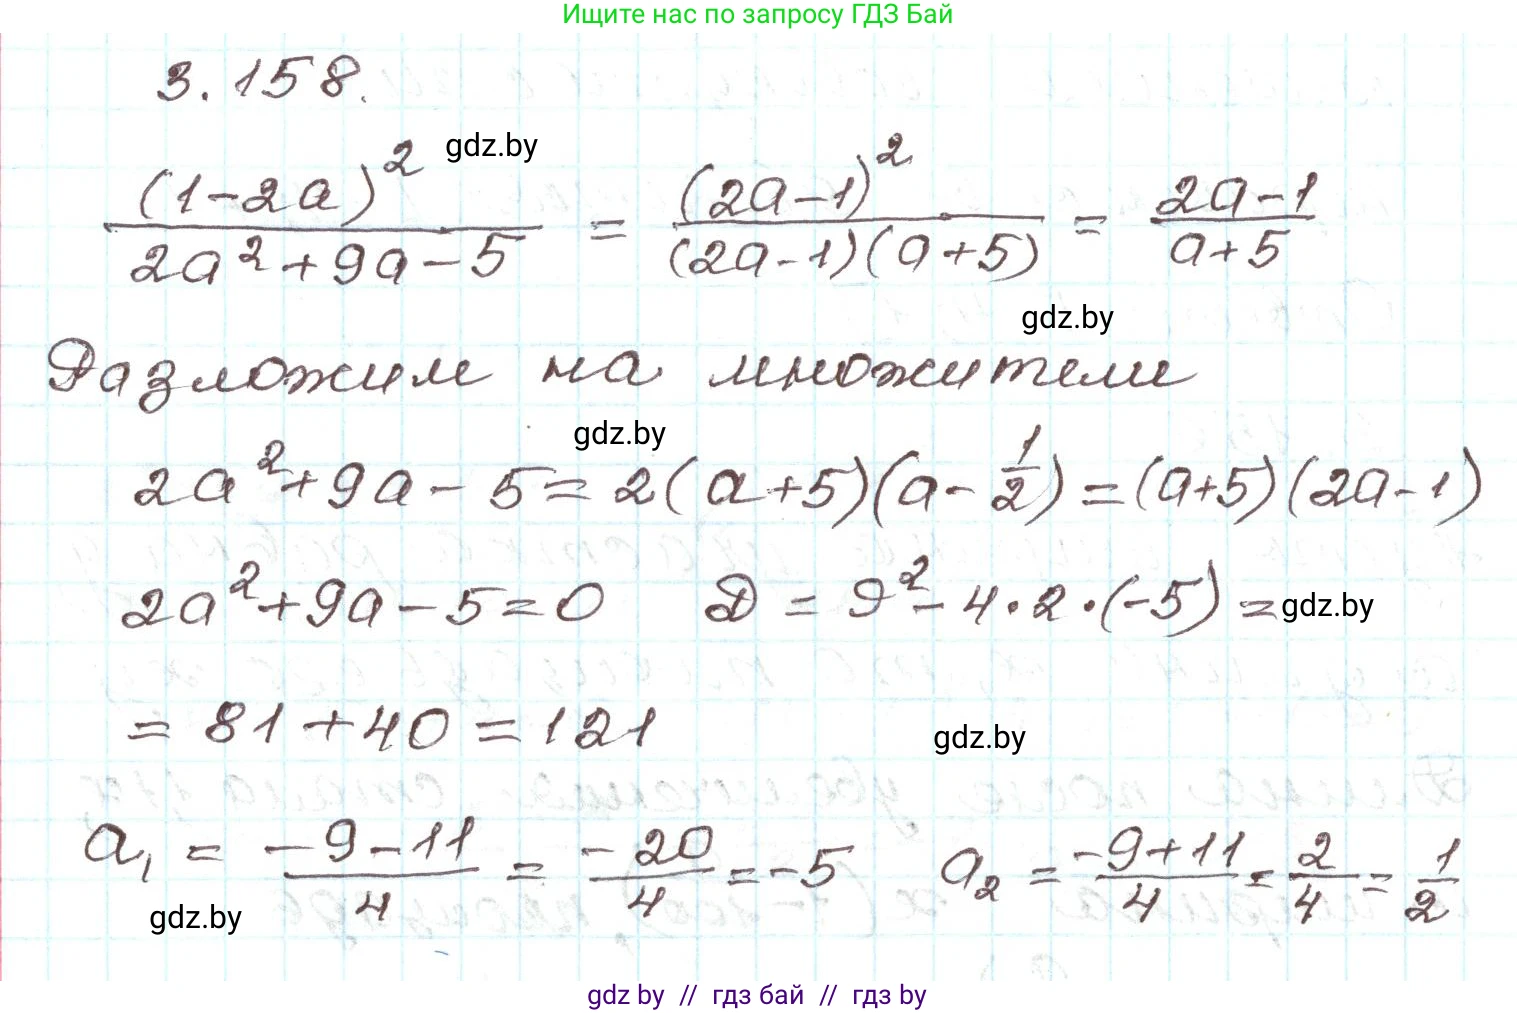 Ищите нас по запросу ГДЗ Бай
3.158.
gdz.by
(1-2a)² / (2a²+9a-5) = (2a-1)² / ((2a-1)(a+5)) = (2a-1) / (a+5)
gdz.by
Разложим на множители
gdz.by
2a²+9a-5=2(a+5)(a-1/2)=(a+5)(2a-1)
2a²+9a-5=0 D=9²-4·2·(-5)=
gdz.by
=81+40=121
gdz.by
a₁ = (-9-11)/4 = -20/4 = -5 a₂ = (-9+11)/4 = 2/4 = 1/2
gdz.by
gdz by // гдз бай // гдз by